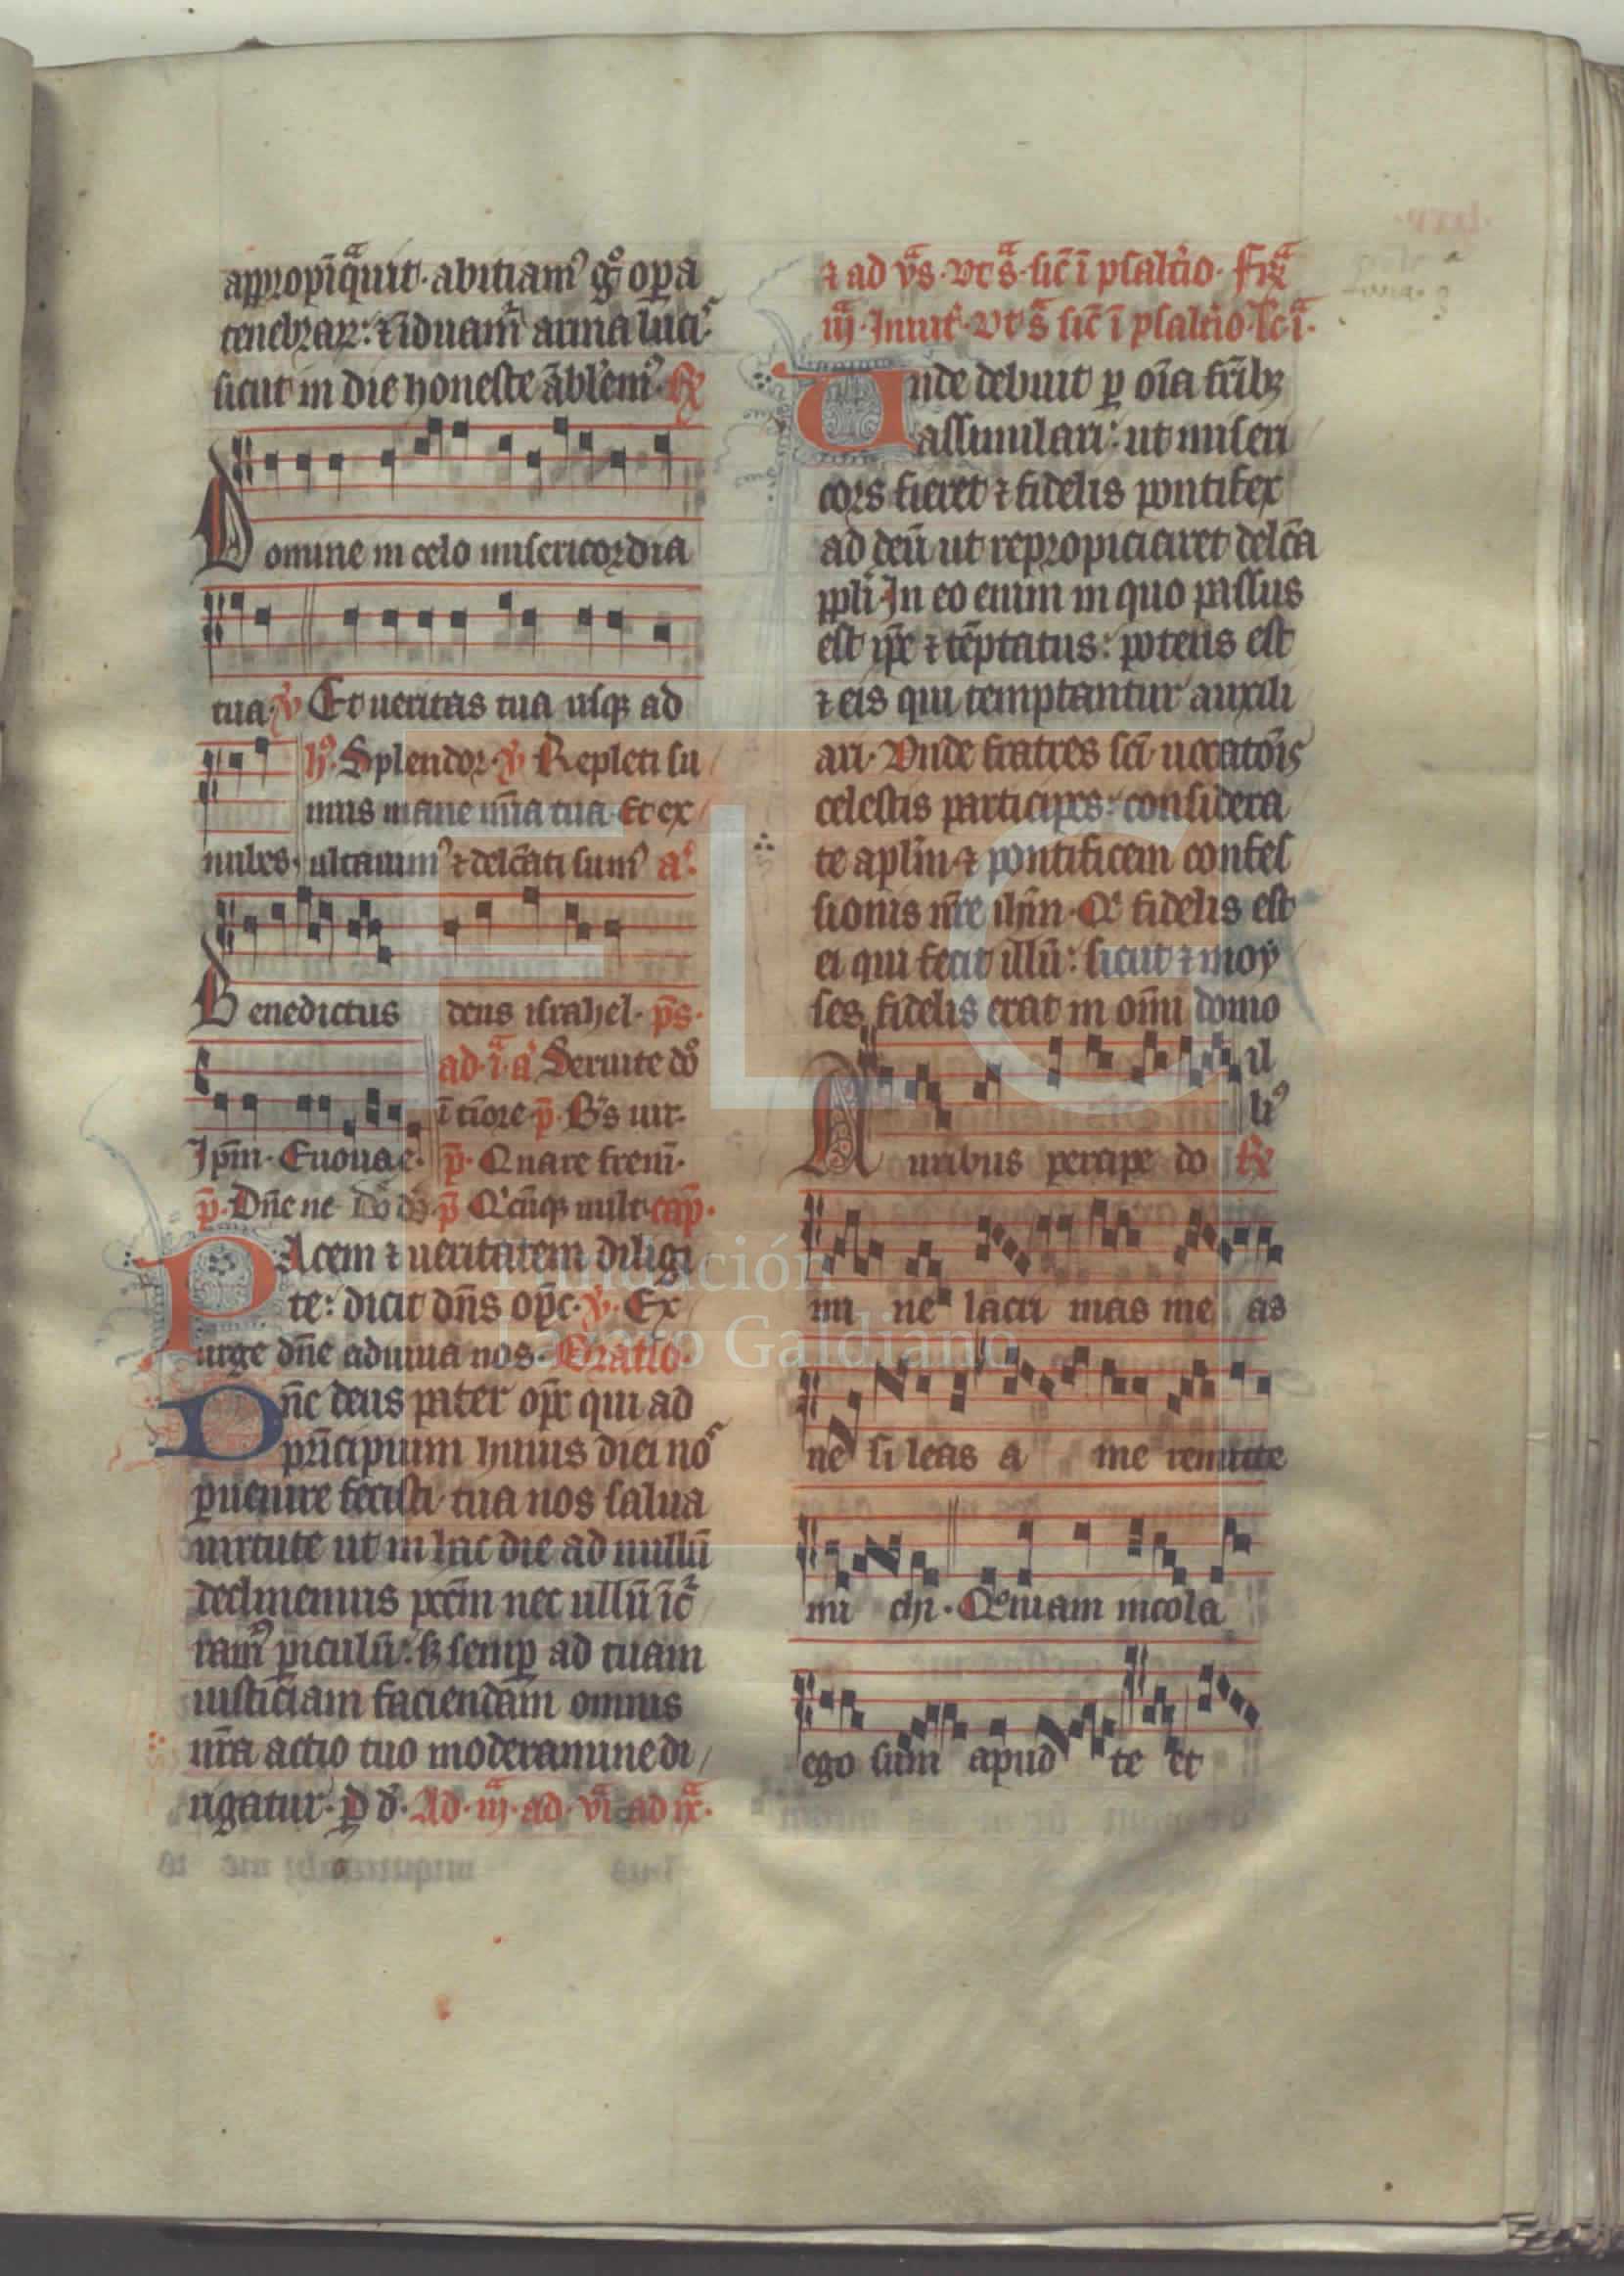 appropīq̄uit. abitiam᷒ gͦ opa
tenebrar: ⁊ iduam̄ arma luci᷒
sicut in die honeste ābłem᷒ R̄
Domine in celo misericordia
tua ℣ Et ueritas tua usq; ad
hͦ. Splendor. ℣ Repleti su
mus mane mīa tua. Et ex
nubes. ultauim᷒ ⁊ delc̄ati sum᷒ a᷒.
Benedictus deus israhel. p̄s.
ad. i.ᵃ a᷒ Seruite dͦo
ī timore p̄. B᷒s uir.
Ip̄m. Euouae. p̄. Quare frem̄.
p̄. Dn̄e ne p̄ Q᷒cūq; uult cap̄.
PAcem ⁊ ueritatem diligi
te: dicit dn̄s op̄c. ℣. Ex
urge dn̄e adiuua nos. Oratio.
Dn̄e deus pater op̄c qui ad
prīcipium huius diei no᷒
puenire fecisti tua nos salua
uirtute ut in hac die ad nullū
declinemus pcc̄m nec ullū īc̄
ram᷒ piculū: sꝫ semp ad tuam
iusticiam faciendam omnis
nr̄a actio tuo moderamine di
rigatur. p d. Ad. iij.ᵃ ad. vi.ᵃ ad ix.ᵃ
⁊ ad v᷒s. vt sᵃ. sic̄ ī psalt̄io. Fīaᵃ
iij.ᵃ Inuit᷒. Vt sᵃ sic̄ ī psalt̄io. Lc̄ iᵃ.
Unde debuit p oīa fr̄ibꝫ
assimilari: ut miseri
cors fieret ⁊ fidelis pontifex
ad deū ut repropiciaret delc̄a
ppli. In eo enim in quo passus
est ip̄e ⁊ tēptatus: potens est
⁊ eis qui temptantur auxili
ari. Vnde fratres sc̄i uocatōis
celestis participes: considera
te aplm̄ ⁊ pontificem confes
sionis nr̄e ihm̄. Q᷒ fidelis est
ei qui fecit illū: sicut ⁊ moy
ses fidelis erat in om̄i domo
il
li᷒
Auribus percipe do R̄
mi ne lacri mas me as
ne si leas a me remitte
mi chi. Qͦniam incola
ego sum apud te et
Fundación
Lázaro Galdiano
FLG